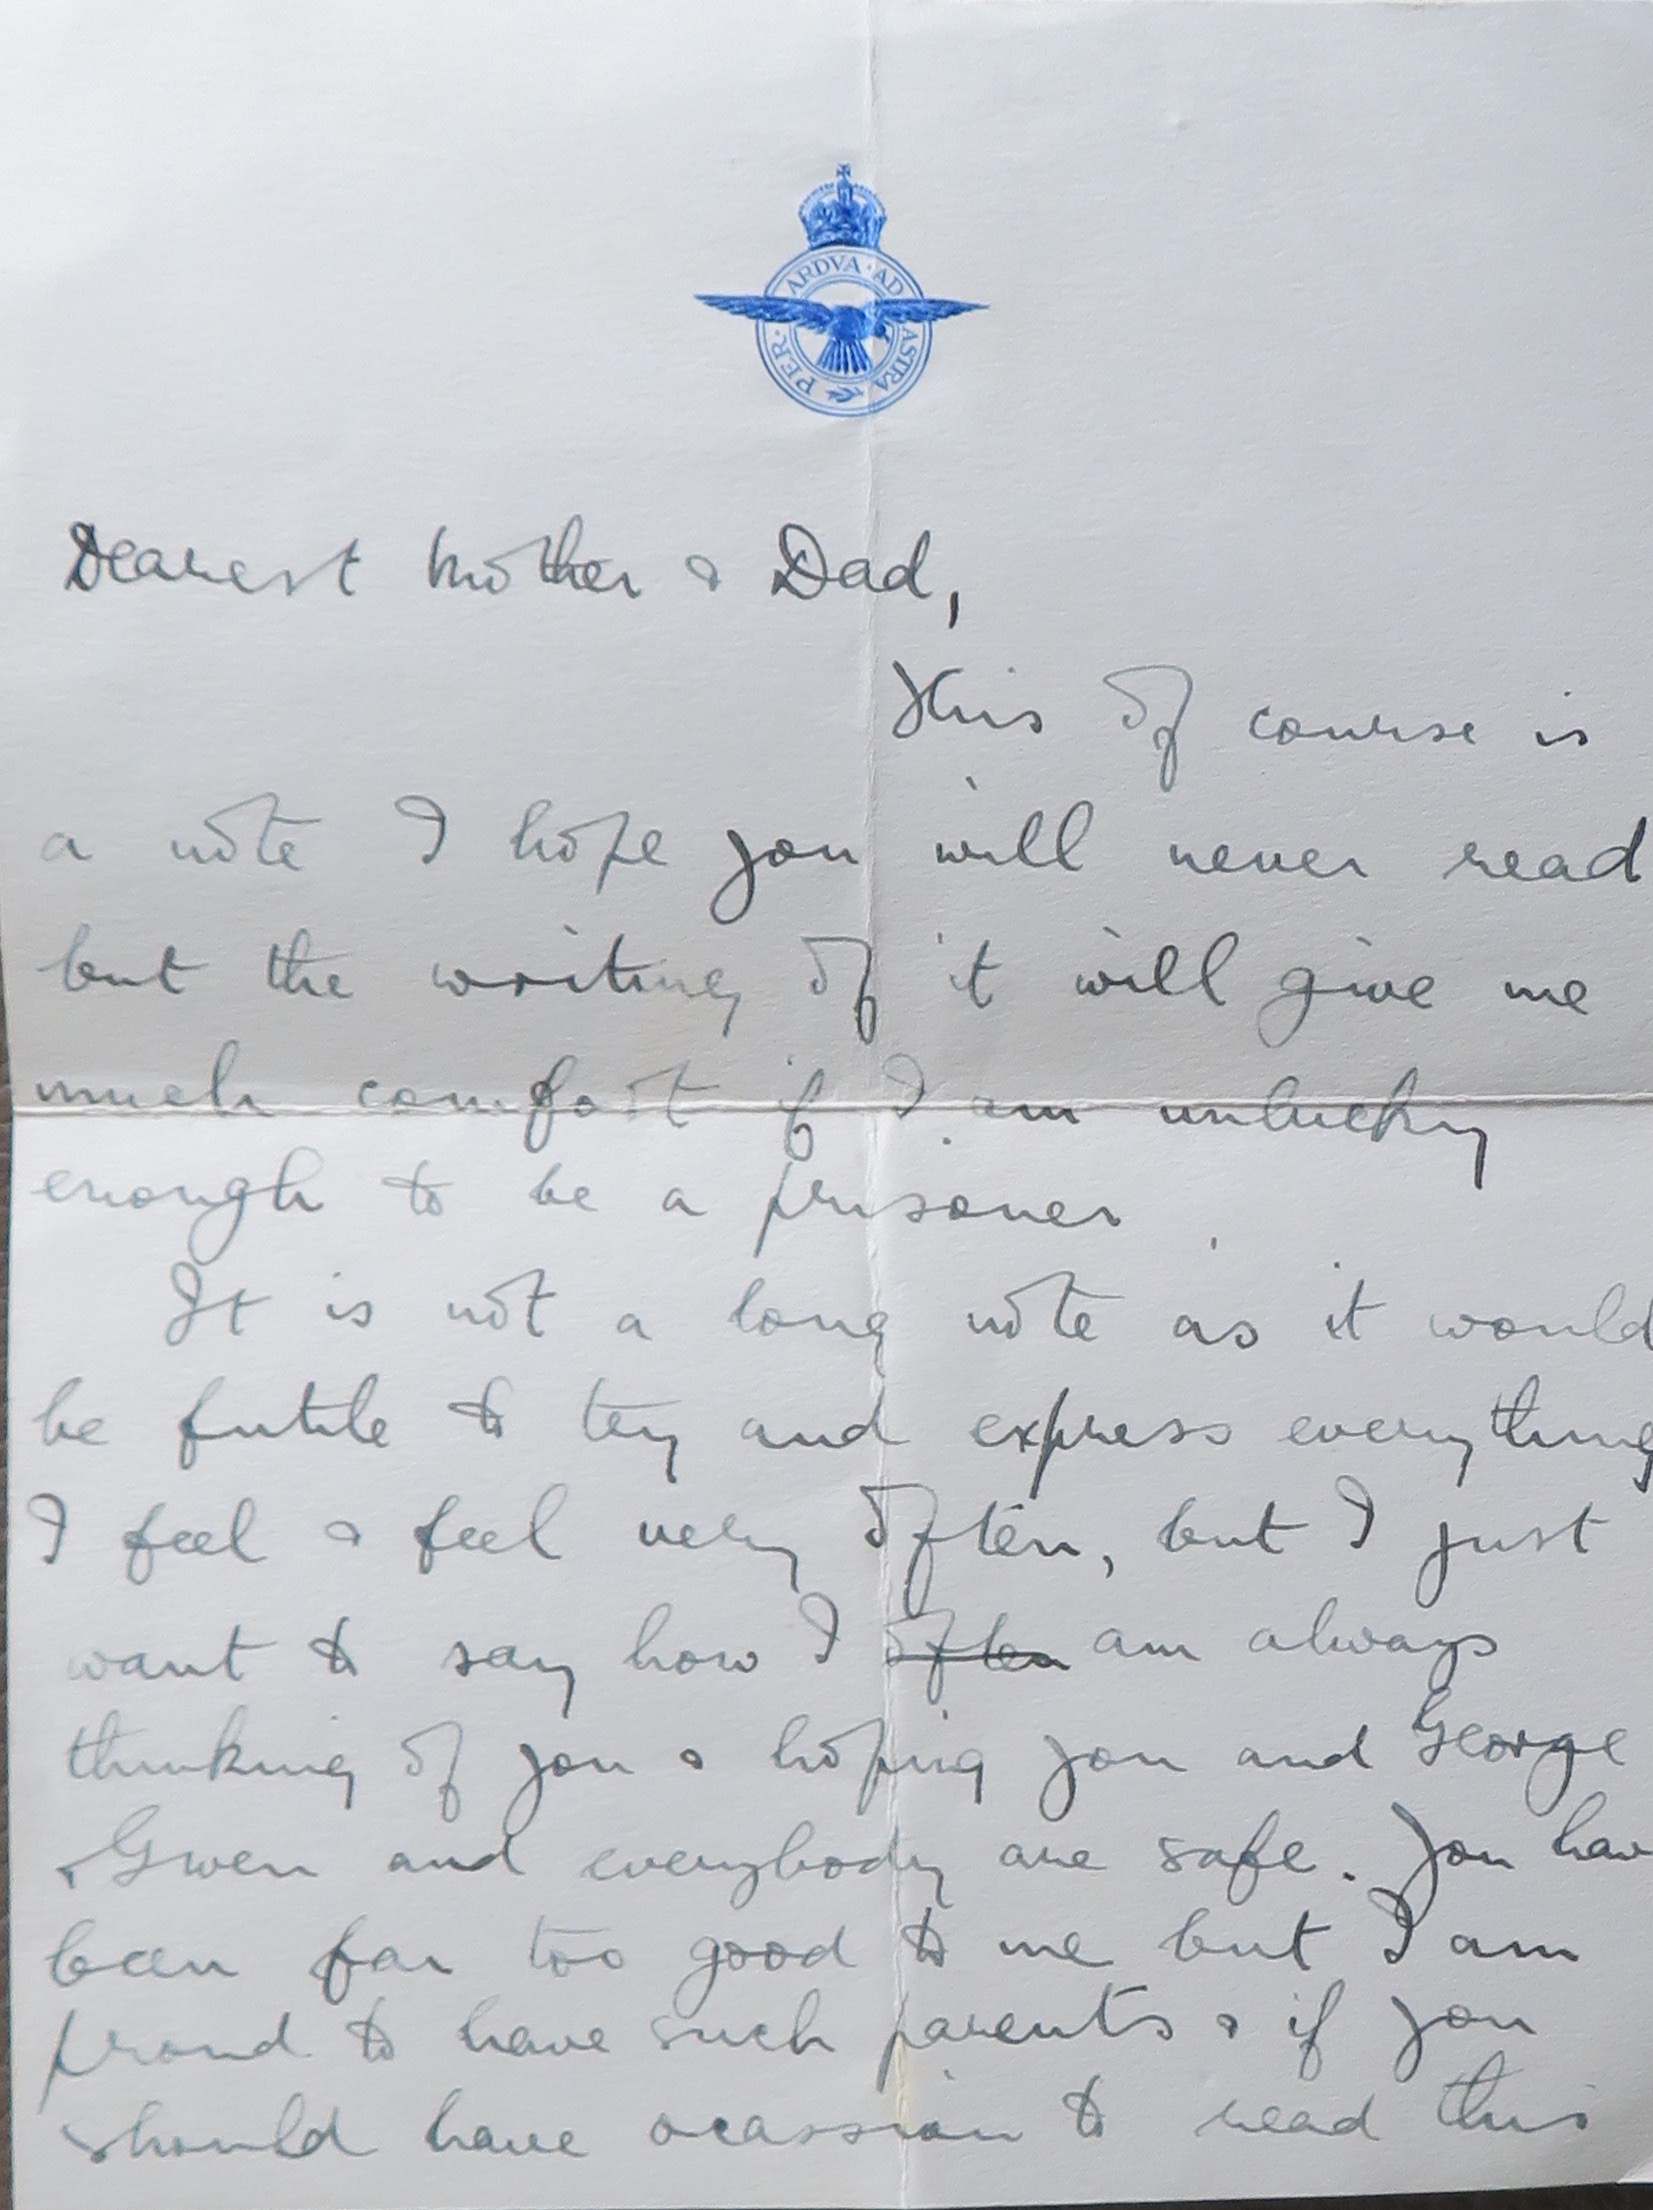 PER · ARDVA · AD ASTRA
Dearest Mother & Dad,
This of course is
a note I hope you will never read
but the writing of it will give me
much comfort if I am unlucky
enough to be a prisoner.
It is not a long note as it would
be futile to try and express everything
I feel & feel very often, but I just
want to say how I often am always
thinking of you & hoping you and George
Gwen and everybody are safe. You have
been far too good to me but I am
proud to have such parents & if you
should have ocassion to read this